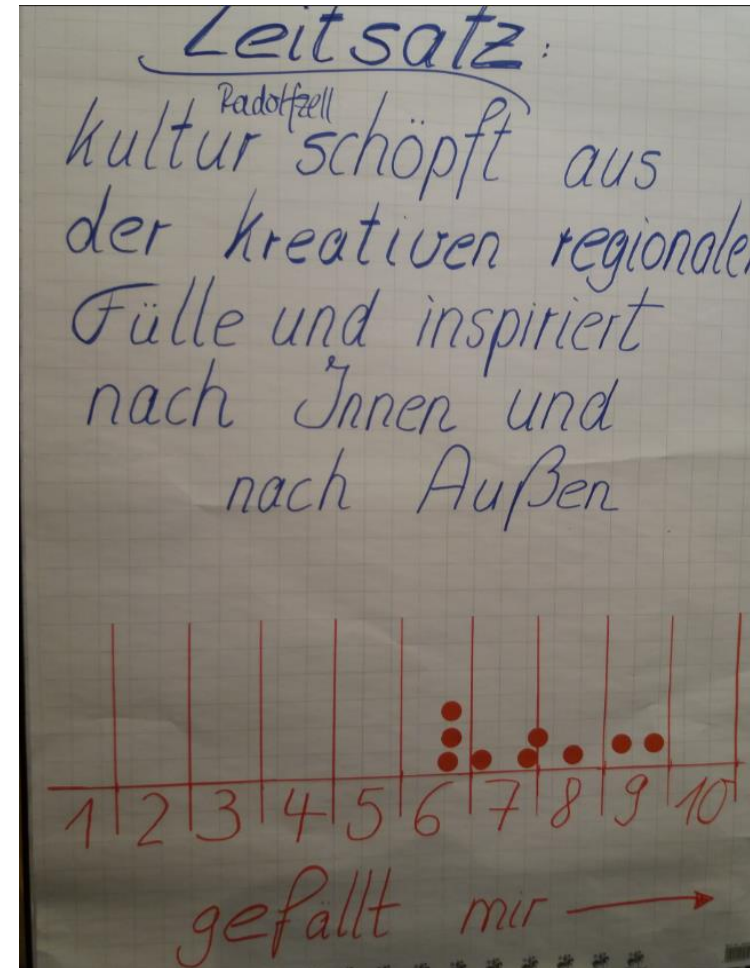 Leitsatz:
Radolfzell
Kultur schöpft aus
der kreativen regionalen
Fülle und inspiriert
nach Innen und
nach Außen
1 2 3 4 5 6 7 8 9 10
gefällt mir